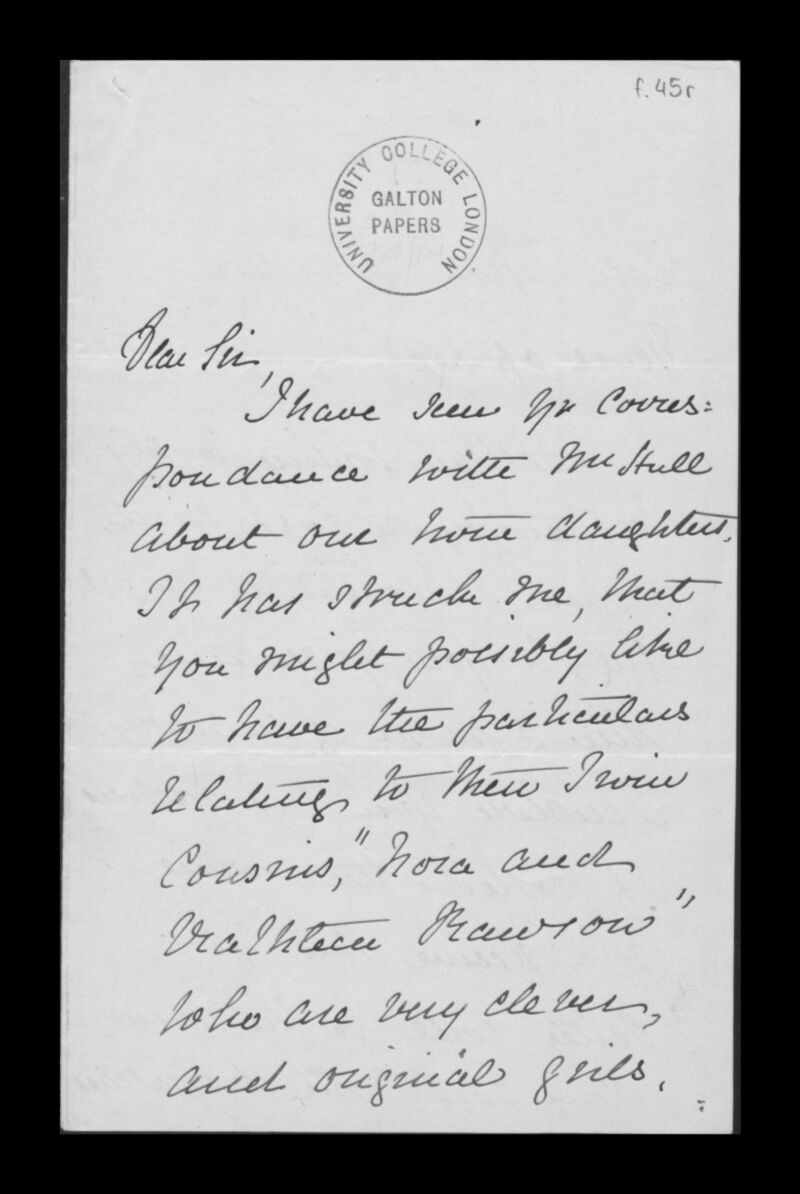 f. 45r
UNIVERSITY COLLEGE LONDON
GALTON
PAPERS
Dear Sir,
I have seen yr Corres=
pondance with Mr Hull
about our twin daughters.
It has struck me, that
you might possibly like
to have the particulars
relating to their Twin
Cousins, "Nora and
Kathleen Rawson"
who are very clever,
and original girls.